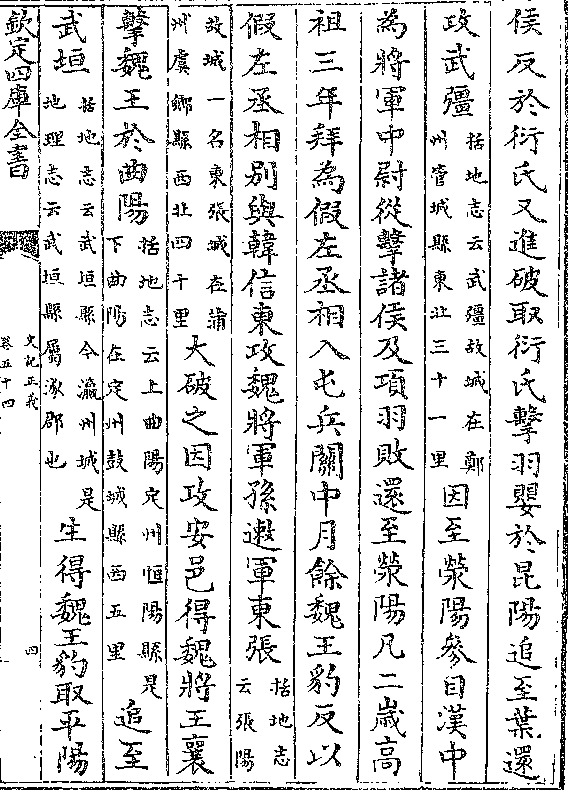 侯反於衍氏又進破取衍氏擊羽嬰於昆陽追至葉還
攻武彊括地志云武彊故城在鄭州管城縣東北三十一里因至滎陽參自漢中
為將軍中尉從擊諸侯及項羽敗還至滎陽凡二歲高
祖三年拜為假左丞相入屯兵關中月餘魏王豹反以
假左丞相別與韓信東攻魏將軍孫遬軍東張括地志云張陽
故城一名東張城在蒲州虞鄉縣西北四十里大破之因攻安邑得魏將王襄
擊魏王於曲陽括地志云上曲陽定州恒陽縣是下曲陽在定州鼓城縣西五里追至
武垣括地志云武垣縣今瀛州城是地理志云武垣縣屬涿郡也生得魏王豹取平陽
欽定四庫全書
史記正義
卷五十四
四